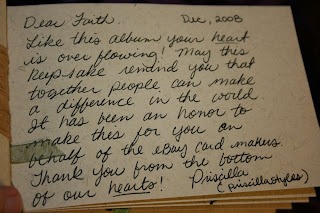 Dear Faith.   Dec, 2008
Like this album your heart
is over flowing! May this
keepsake remind you that
together people can make
a difference in the world.
It has been an honor to
make this for you on
behalf of the eBay card makers.
Thank you from the bottom
of our hearts! Priscilla
(priscillastyles)